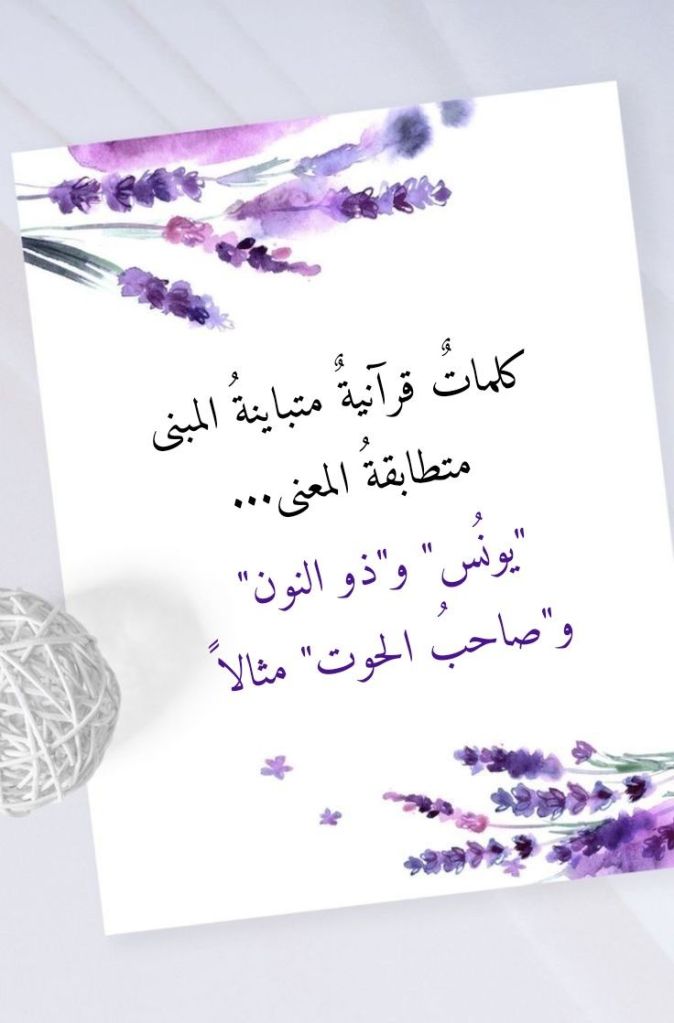 كلماتٌ قرآنيةٌ متباينةُ المبنى
متطابقةُ المعنى...
"يونُس" و"ذو النون"
و"صاحبُ الحوت" مثالاً